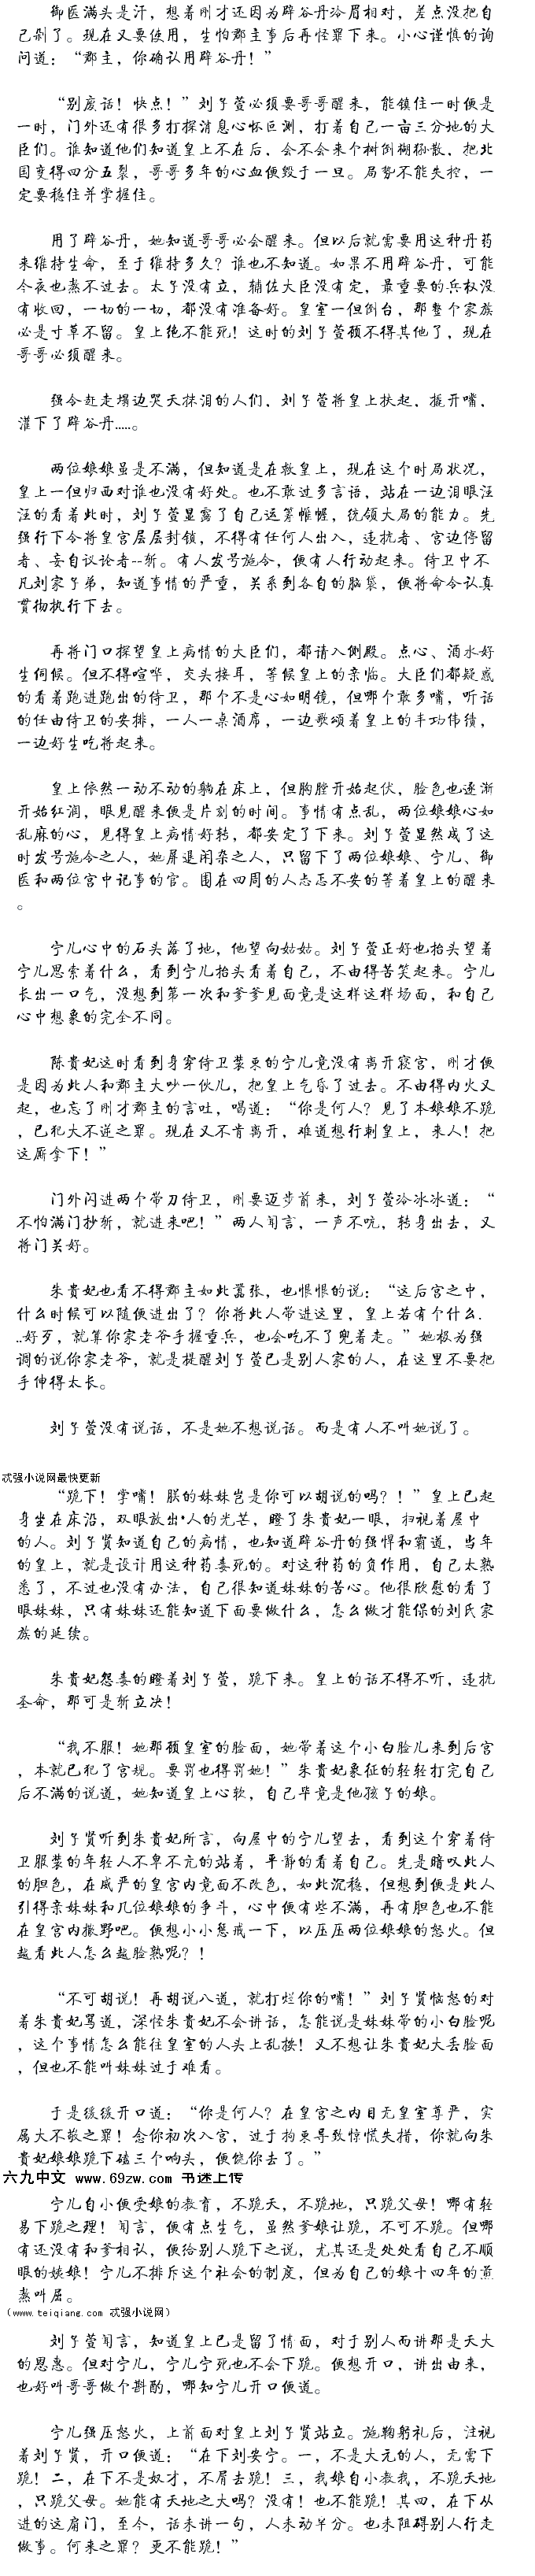 御医满头是汗，想着刚才还因为辟谷丹冷眉相对，差点没把自
己剁了。现在又要使用，生怕郡主事后再怪罪下来。小心谨慎的询
问道：“郡主，你确认用辟谷丹！”
“别废话！快点！”刘子萱必须要哥哥醒来，能镇住一时便是
一时，门外还有很多打探消息心怀叵测，打着自己一亩三分地的大
臣们。谁知道他们知道皇上不在后，会不会来个树倒猢狲散，把北
国变得四分五裂，哥哥多年的心血便毁于一旦。局势不能失控，一
定要稳住并掌握住。
用了辟谷丹，她知道哥哥必会醒来。但以后就需要用这种丹药
来维持生命，至于维持多久？谁也不知道。如果不用辟谷丹，可能
今夜也熬不过去。太子没有立，辅佐大臣没有定，最重要的兵权没
有收回，一切的一切，都没有准备好。皇室一但倒台，那整个家族
必是寸草不留。皇上绝不能死！这时的刘子萱顾不得其他了，现在
哥哥必须醒来。
强令赶走塌边哭天抹泪的人们，刘子萱将皇上扶起，撬开嘴，
灌下了辟谷丹.....。
两位娘娘虽是不满，但知道是在救皇上，现在这个时局状况，
皇上一但归西对谁也没有好处。也不敢过多言语，站在一边泪眼汪
汪的看着此时，刘子萱显露了自己运筹帷幄，统领大局的能力。先
强行下令将皇宫层层封锁，不得有任何人出入，违抗者、宫边停留
者、妄自议论者--斩。有人发号施令，便有人行动起来。侍卫中不
凡刘家子弟，知道事情的严重，关系到各自的脑袋，便将命令认真
贯彻执行下去。
再将门口探望皇上病情的大臣们，都请入侧殿。点心、酒水好
生伺候。但不得喧哗，交头接耳，等候皇上的亲临。大臣们都疑惑
的看着跑进跑出的侍卫，那个不是心如明镜，但哪个敢多嘴，听话
的任由侍卫的安排，一人一桌酒席，一边歌颂着皇上的丰功伟绩，
一边好生吃将起来。
皇上依然一动不动的躺在床上，但胸膛开始起伏，脸色也逐渐
开始红润，眼见醒来便是片刻的时间。事情有点乱，两位娘娘心如
乱麻的心，见得皇上病情好转，都安定了下来。刘子萱显然成了这
时发号施令之人，她屏退闲杂之人，只留下了两位娘娘、宁儿、御
医和两位宫中记事的官。围在四周的人忐忑不安的等着皇上的醒来
。
宁儿心中的石头落了地，他望向姑姑。刘子萱正好也抬头望着
宁儿思索着什么，看到宁儿抬头看着自己，不由得苦笑起来。宁儿
长出一口气，没想到第一次和爹爹见面竟是这样这样场面，和自己
心中想象的完全不同。
陈贵妃这时看到身穿侍卫装束的宁儿竟没有离开寝宫，刚才便
是因为此人和郡主大吵一伙儿，把皇上气昏了过去。不由得内火又
起，也忘了刚才郡主的言吐，喝道：“你是何人？见了本娘娘不跪
，已犯大不逆之罪。现在又不肯离开，难道想行刺皇上，来人！把
这厮拿下！”
门外闪进两个带刀侍卫，刚要迈步前来，刘子萱冷冰冰道：“
不怕满门抄斩，就进来吧！”两人闻言，一声不吭，转身出去，又
将门关好。
朱贵妃也看不得郡主如此嚣张，也恨恨的说：“这后宫之中，
什么时候可以随便进出了？你将此人带进这里，皇上若有个什么.
..好歹，就算你家老爷手握重兵，也会吃不了兜着走。”她极为强
调的说你家老爷，就是提醒刘子萱已是别人家的人，在这里不要把
手伸得太长。
刘子萱没有说话，不是她不想说话。而是有人不叫她说了。
忒强小说网最快更新
“跪下！掌嘴！朕的妹妹岂是你可以胡说的吗？！”皇上已起
身坐在床沿，双眼放出•人的光芒，瞪了朱贵妃一眼，扫视着屋中
的人。刘子贤知道自己的病情，也知道辟谷丹的强悍和霸道，当年
的皇上，就是设计用这种药毒死的。对这种药的负作用，自己太熟
悉了，不过也没有办法，自己很知道妹妹的苦心。他很欣慰的看了
眼妹妹，只有妹妹还能知道下面要做什么，怎么做才能保的刘氏家
族的延续。
朱贵妃怨毒的瞪着刘子萱，跪下来。皇上的话不得不听，违抗
圣命，那可是斩立决！
“我不服！她那顾皇室的脸面，她带着这个小白脸儿来到后宫
，本就已犯了宫规。要罚也得罚她！”朱贵妃象征的轻轻打完自己
后不满的说道，她知道皇上心软，自己毕竟是他孩子的娘。
刘子贤听到朱贵妃所言，向屋中的宁儿望去，看到这个穿着侍
卫服装的年轻人不卑不亢的站着，平静的看着自己。先是暗叹此人
的胆色，在威严的皇宫内竟面不改色，如此沉稳，但想到便是此人
引得亲妹妹和几位娘娘的争斗，心中便有些不满，再有胆色也不能
在皇宫内撒野吧。便想小小惩戒一下，以压压两位娘娘的怒火。但
越看此人怎么越脸熟呢？！
“不可胡说！再胡说八道，就打烂你的嘴！”刘子贤恼怒的对
着朱贵妃骂道，深怪朱贵妃不会讲话，怎能说是妹妹带的小白脸呢
，这个事情怎么能往皇室的人头上乱按！又不想让朱贵妃大丢脸面
，但也不能叫妹妹过于难看。
于是缓缓开口道：“你是何人？在皇宫之内目无皇室尊严，实
属大不敬之罪！念你初次入宫，过于拘束导致惊慌失措，你就向朱
贵妃娘娘跪下磕三个响头，便饶你去了。”
六九中文 www.69zw.com 书迷上传
宁儿自小便受娘的教育，不跪天，不跪地，只跪父母！哪有轻
易下跪之理！闻言，便有点生气，虽然爹娘让跪，不可不跪。但哪
有还没有和爹相认，便给别人跪下之说，尤其还是处处看自己不顺
眼的姨娘！宁儿不排斥这个社会的制度，但为自己的娘十四年的煎
熬叫屈。
（www.teiqiang.com 忒强小说网）
刘子萱闻言，知道皇上已是留了情面，对于别人而讲那是天大
的恩惠。但对宁儿，宁儿宁死也不会下跪。便想开口，讲出由来，
也好叫哥哥做个斟酌，哪知宁儿开口便道。
宁儿强压怒火，上前面对皇上刘子贤站立。施鞠躬礼后，注视
着刘子贤，开口便道：“在下刘安宁。一，不是大元的人，无需下
跪！二，在下不是奴才，不屑去跪！三，我娘自小教我，不跪天地
，只跪父母。她能有天地之大吗？没有！也不能跪！其四，在下从
进的这扇门，至今，话未讲一句，人未动半分。也未阻碍别人行走
做事。何来之罪？更不能跪！”